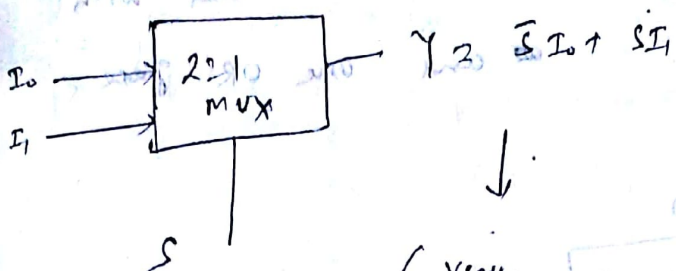 I₀
I₁
2:1
MUX
Y = S̅ I₀ + S I₁
S